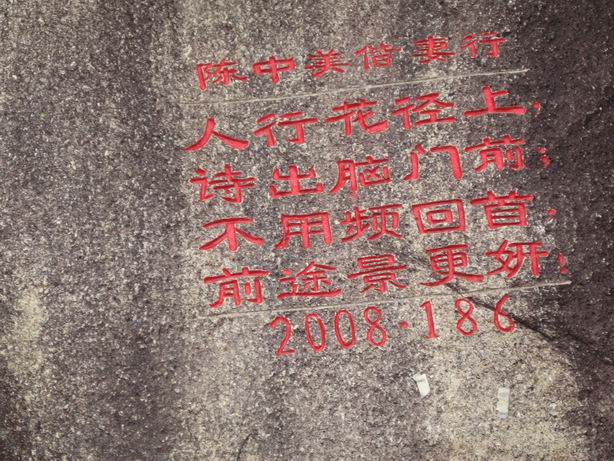 陈中美偕妻行
人行花径上，
诗出脑门前；
不用频回首，
前途景更妍！
2008·186